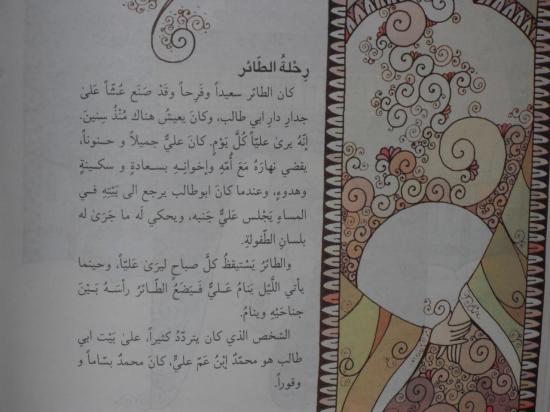 رِحْلةُ الطّائر
كان الطائر سعيداً وفَرِحاً وقَدْ صَنَع عُشّاً عَلىٰ
جدارِ دارِ ابي طالب، وكانَ يعيشُ هناك مُنْذُ سِنينَ.
إنّهُ يرىٰ عليّاً كُلَّ يَوْمٍ. كانَ عليٌّ جميلاً و حنوناً،
يقضي نهارَهُ مَعَ أُمّهِ وإخوانِـهِ بسـعادةٍ و سكـينةٍ
وهدوءٍ، وعندما كانَ ابوطالب يرجع الى بَيْتِهِ فـي
المساءِ يَجْلس عَليٌّ جَنبه، ويحكي لَه ما جَرىٰ له
بلسانِ الطّفولةِ.
والطائرُ يَسْتيقظُ كلَّ صباحٍ ليرىٰ عَليّاً، وحينما
يأتي اللَّيْل يَنامُ عَـليٌّ فـيَضَعُ الطّـائرُ رأسَـهُ بَـيْنَ
جناحَيْهِ وينامُ.
الشخص الذي كان يتردّدُ كثيراً، علىٰ بَيْت ابي
طالب هو محمّدٌ اِبْنُ عَمّ عليٍّ، كانَ محمدٌ بسّاماً و
وقوراً.